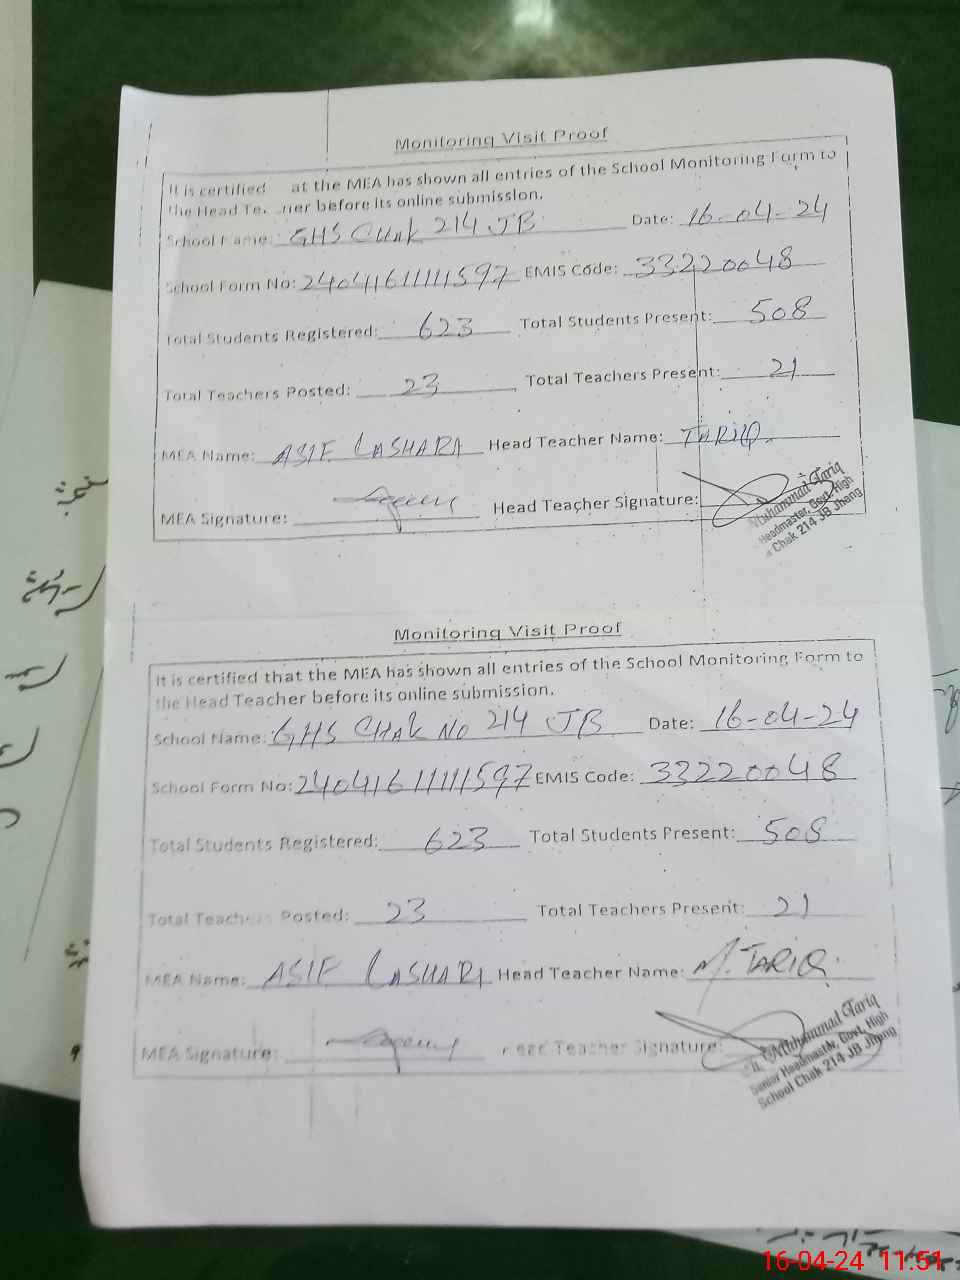 Monitoring Visit Proof
It is certified at the MEA has shown all entries of the School Monitoring Form to
the Head Te ner before its online submission.
School Name: GHS CHAK 214 JB Date: 16-04-24
School Form No: 24041611111597 EMIS Code: 33220048
Total Students Registered: 623 Total Students Present: 508
Total Teachers Posted: 23 Total Teachers Present: 21
MEA Name: ASIF LASHARI Head Teacher Name: TARIQ
MEA Signature: Head Teacher Signature:
Muhammad Tariq
Headmaster, Govt. High
Chak 214 JB Jhang
Monitoring Visit Proof
It is certified that the MEA has shown all entries of the School Monitoring Form to
the Head Teacher before its online submission.
School Name: GHS CHAK NO 214 JB Date: 16-04-24
School Form No: 24041611111597 EMIS Code: 33220048
Total Students Registered: 623 Total Students Present: 508
Total Teachers Posted: 23 Total Teachers Present: 21
MEA Name: ASIF LASHARI Head Teacher Name: M. TARIQ.
MEA Signature: Head Teacher Signature:
Muhammad Tariq
Senior Headmaster, Govt. High
School Chak 214 JB Jhang
16-04-24 11:51